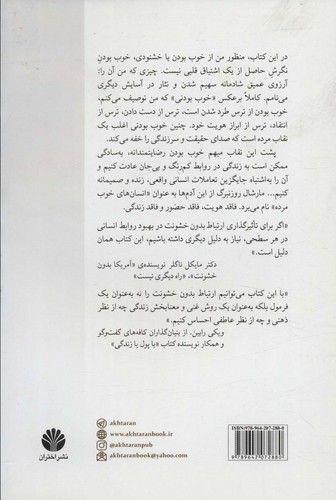 در این کتاب، منظور من از خوب بودن یا خشنودی، خوب بودنِ
نگرشِ حاصل از یک اشتیاق قلبی نیست. چیزی که من آن را:
آرزوی عمیق شادمانه سهیم شدن و نثار در آسایش دیگری
می‌نامم. کاملاً برعکس «خوب بودنی» که من توصیف می‌کنم،
خوب بودن از ترس طرد شدن است، ترس از پس دادن، ترس از
انتقاد، ترس از ابراز هویت خود. چنین خوب بودنی اغلب یک
نقاب مرده است که صدای حقیقت و سرزندگی را خفه می‌کند.
پشت این نقاب مبهم خوب بودن رضایتمندانه، به‌سادگی
ممکن است به زندگی در روابط کم‌رنگ و بی‌جان عادت کنیم و
آن را به‌اشتباه جایگزین تعاملات انسانی واقعی، زنده و صمیمانه
کنیم... مارشال روزنبرگ از این آدم‌ها به عنوان «انسان‌های خوب
مرده» نام می‌برد. فاقد هویت، فاقد حضور و فاقد زندگی.
«اگر برای تأثیرگذاری ارتباط بدون خشونت در بهبود روابط انسانی
در هر سطحی، نیاز به دلیل دیگری داشته باشیم، این کتاب همان
دلیل است.»
دکتر مایکل ناگلر نویسنده‌ی «آمریکا بدون
خشونت»، «راه دیگری نیست»
«با این کتاب می‌توانیم ارتباط بدون خشونت را نه به‌عنوان یک
فرمول بلکه به‌عنوان یک روش غنی و معنابخش زندگی چه از نظر
ذهنی و چه از نظر عاطفی احساس کنیم.»
ویکی رابین. از بنیان‌گذاران کافه‌های گفت‌وگو
و همکار نویسنده کتاب «با پول یا زندگی»
akhtaran
www.akhtaranbook.ir
akhtaranpub
akhtaranbook@yahoo.com
ISBN: 978-964-207-288-0
9 789642 072880
نشر اختران